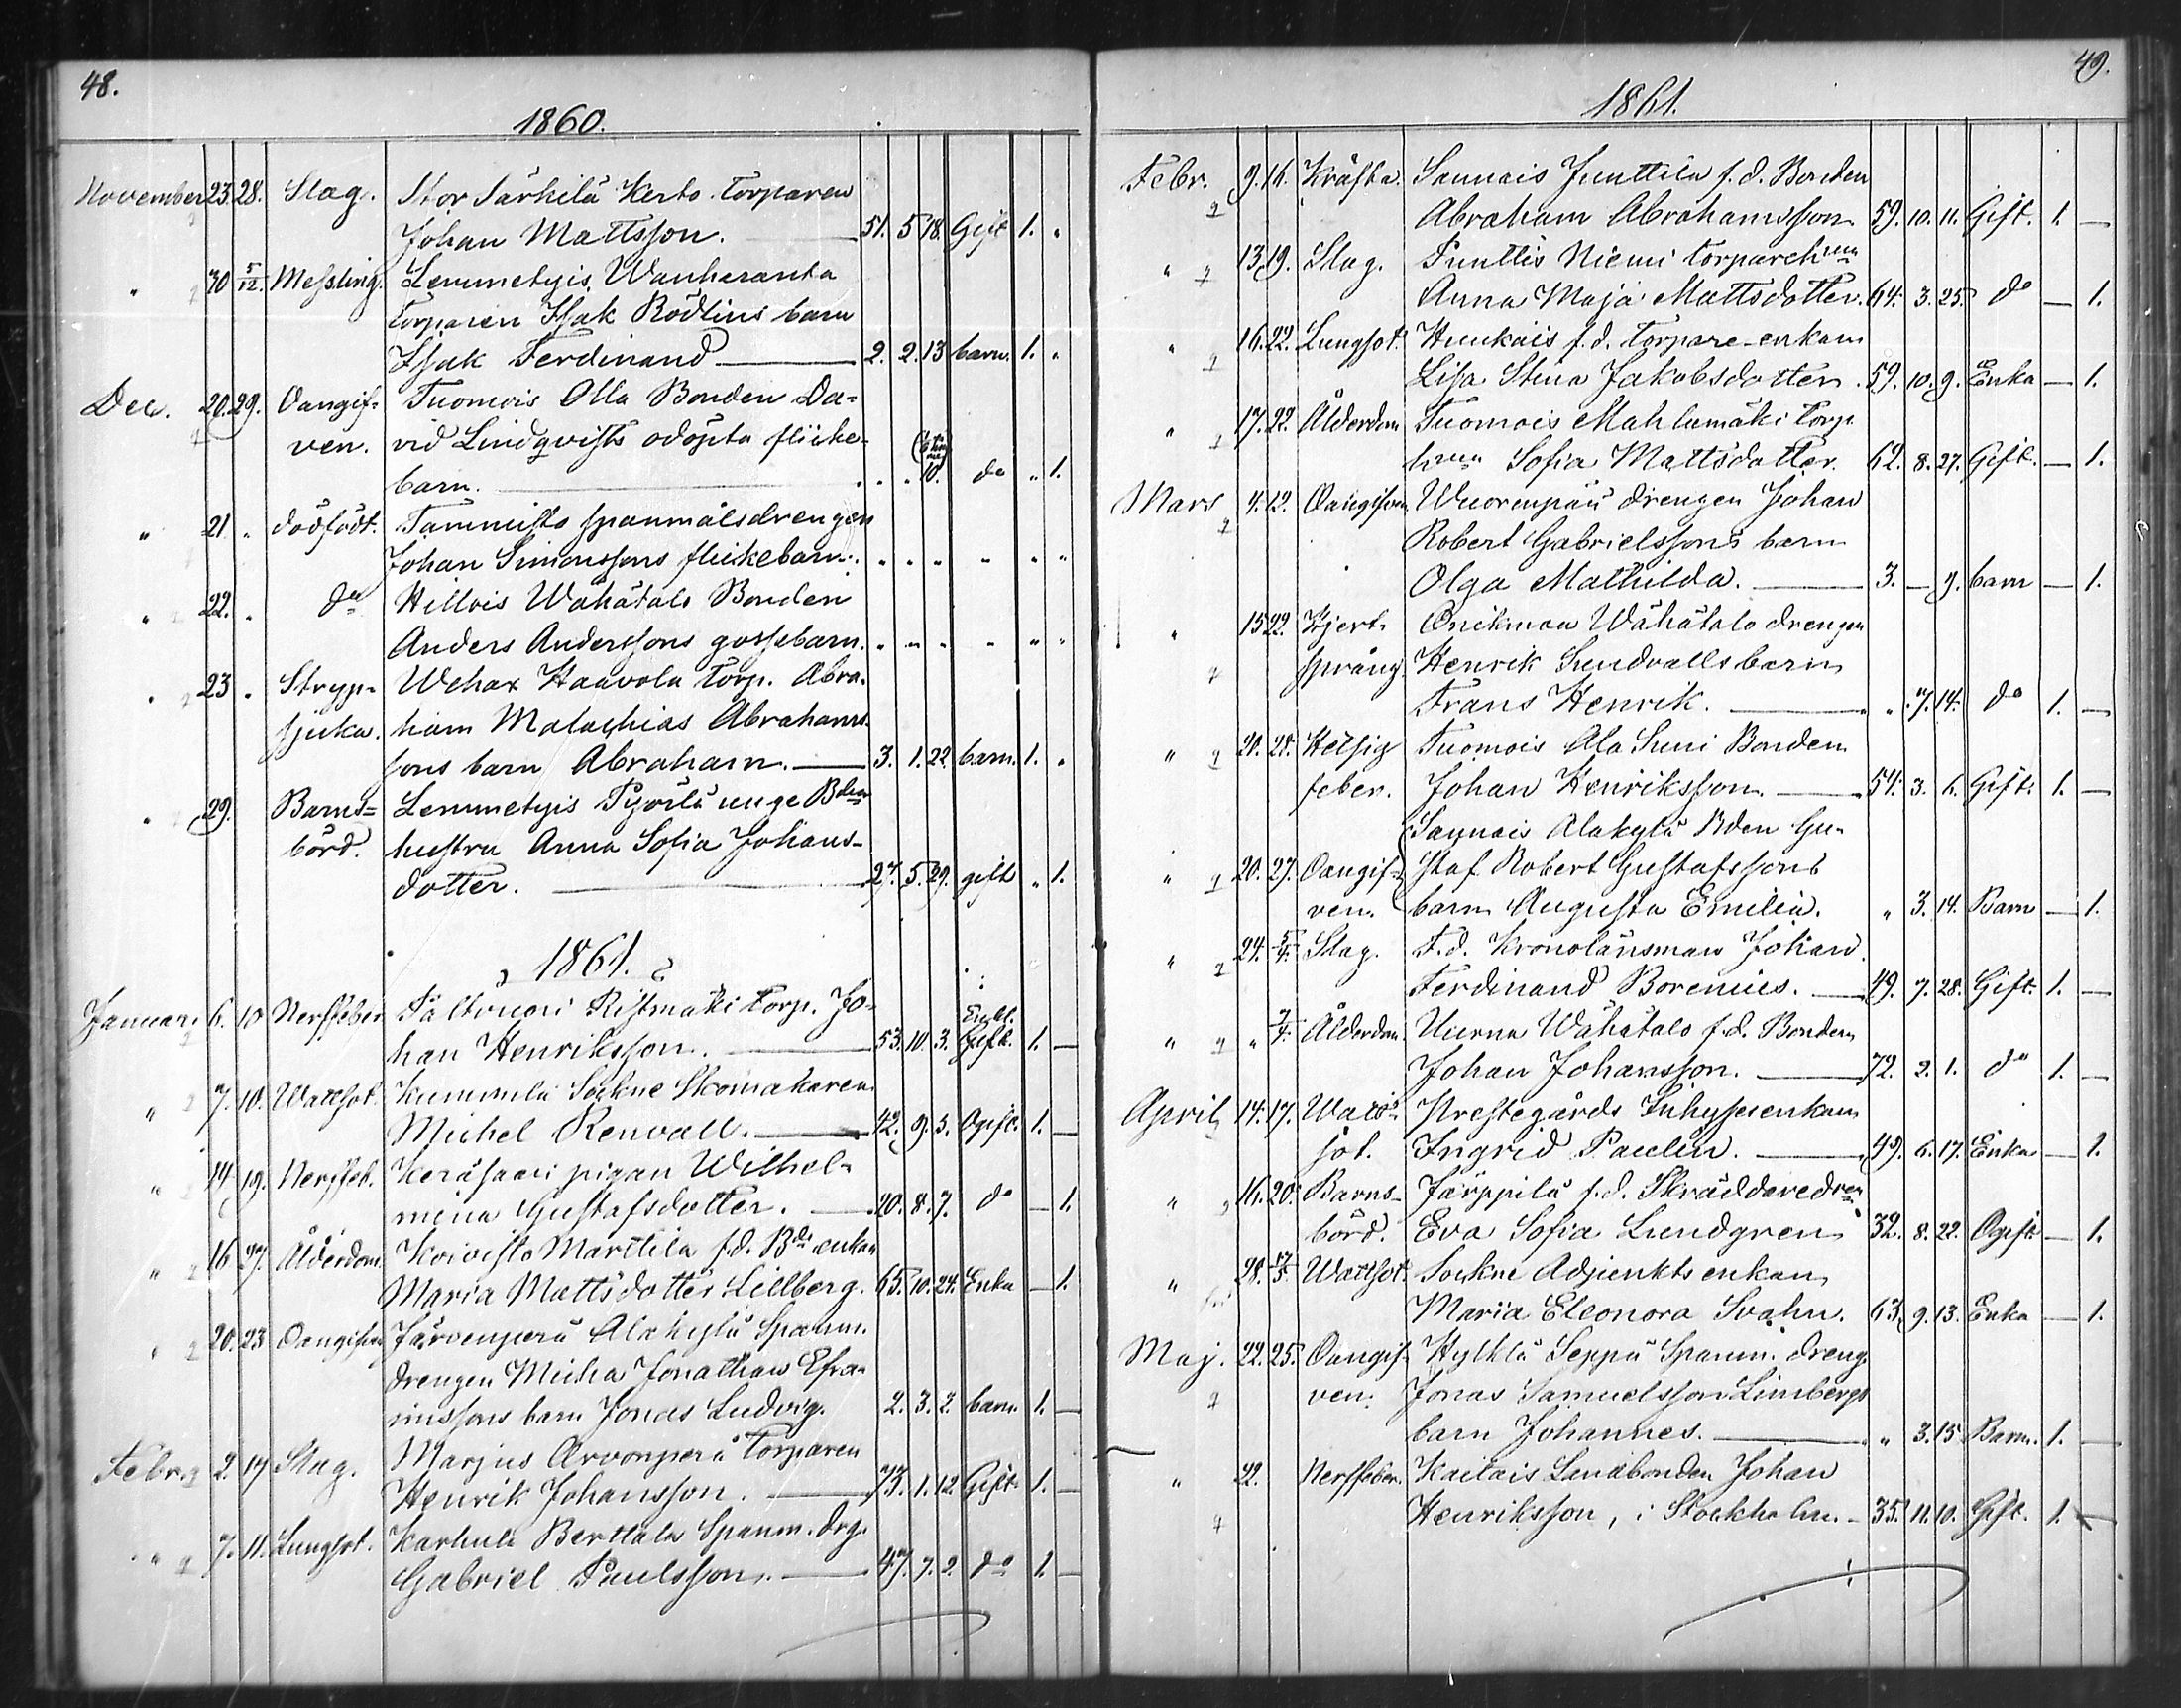 48.
1860.
November 23. 28. Slag. Stor Särkilä Kerto Torparen
Johan Mattsson. 51. 5 18. Gift 1. "
" 30 5/12. Messling. Lemmetyis Wanharanta
Torparen Isak Rödlins barn
Isak Ferdinand 2. 2. 13 barn. 1. "
Dec. 20. 29. Oangif- Tuomois Olla Bonden Da-
ven. vid Lindqvists odöpta flicke-
barn. " " 10. do " 1.
" 21 " dödfödt. Tammisto spanmålsdrengen
Johan Simonssons flickebarn. " " " " " "
" 22. " do Hillois Wähätalo Bonden
Anders Anderssons gossebarn. " " " " " "
" 23 " Stryp- Wehax Haavola Torp. Abra-
sjuka. ham Malachias Abrahams-
sons barn Abraham. 3. 1. 22. barn. 1. "
" 29. Barns- Lemmetyis Pyörlä unge Bdens
börd. hustru Anna Sofia Johans-
dotter. 27. 5. 29. gift " 1.
1861.
Januari 6. 10 Nerffeber Paltvuori Ristmäki Torp. Jo-
han Henriksson. 53. 10. 3. Gift. 1. —
" 7. 10. Wattsot. Kummila Sockne Skomakaren
Michel Renvall. 42. 9. 3. Ogift. 1. —
" 14 19. Nerffeb. Keräsaari pigan Wilhel-
mina Gustafsdotter. 20. 8. 7. do — 1.
" 16 27. Ålderdom. Koivisto Marttila f.d. Bde enkan
Maria Mattsdotter Lillberg. 65. 10. 24. Enka — 1.
" 20. 23 Oangifven Järvenperä Alakylä Spanm.
drengen Micha Jonathan Efra-
imssons barn Jonas Ludvig. 2. 3. 2. barn. 1. —
Febr. 2. 17 Slag. Marjus Arvonperä Torparen
Henrik Johansson. 73. 1. 12. Gift. 1. —
" 7. 11. Lungsot. Karhula Berttala Spanm. drg.
Gabriel Paulsson. 47. 7. 2. do 1. —
49.
1861.
Febr. 9. 16. Kräfta. Saunais Junttila f.d. Bonden
Abraham Abrahamsson 59. 10. 11. Gift. 1. —
" 13. 19. Slag. Punttis Niemi Torparehrun
Anna Maja Mattsdotter. 64. 3. 25. do — 1.
" 16. 22. Lungsot. Hunkais f.d. Torpare-enkan
Lisa Stina Jakobsdotter. 59. 10. 9. Enka — 1.
" 17. 22. Ålderdom Tuomois Mahlamäki Torp.
hrun Sofia Mattsdotter. 62. 8. 27. Gift. — 1.
Mars 4. 12. Oangifven Wuorenpää drengen Johan
Robert Gabrielssons barn
Olga Mathilda. 3. — 9. barn — 1.
" 15 22. Hjert- Onikmaa Wähätalo drengen
språng. Henrik Sundvalls barn
Frans Henrik. " 7. 14. do 1. —
" 20. 28. Hetsig Tuomois Ala Suni Bonden
feber. Johan Henriksson. 54. 3. 6. Gift. 1. —
Saunais Alakylä Bden Gu-
" 20. 27. Oangif- staf Robert Gustafssons
ven. barn Augusta Emilia. " 3. 14. Barn — 1.
" 24. 5/4. Slag. F.d. Kronolänsman Johan
Ferdinand Borenius. 49. 7. 28. Gift. 1. —
" " 7/4. Ålderdom. Uurna Wähätalo f.d. Bonden
Johan Johansson. 72. 2. 1. do 1. —
April 14. 17. Watt- Prestegårds Inhysesenkan
sot. Ingrid Paulin. 49. 6. 17. Enka — 1.
" 16. 20. Barns- Järppilä f.d. Skräddaredren
börd. Eva Sofia Lundgren 32. 8. 22. Ogift — 1.
" 28. Wattsot. Sockne Adjunkts enkan
Maria Eleonora Svahn. 63. 9. 13. Enka — 1.
Maj. 22. 25. Oangif- Hylkilä Seppä Spanm. dreng.
ven. Jonas Samuelsson Limbergs
barn Johannes. " 3. 15 Barn. 1. —
" 22. Nerffeber. Kaitais Landbonden Johan
Henriksson, i Stockholm. 35. 11. 10. Gift. 1. —